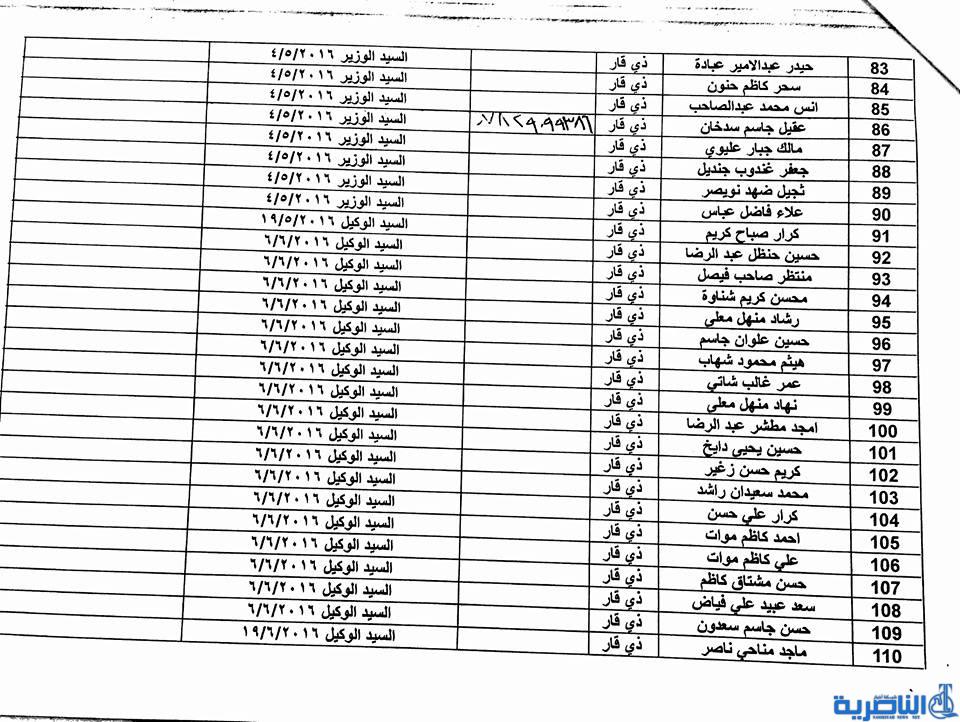 83 حيدر عبدالامير عبادة ذي قار السيد الوزير ٤/٥/٢٠١٦
84 سحر كاظم حنون ذي قار السيد الوزير ٤/٥/٢٠١٦
85 انس محمد عبدالصاحب ذي قار السيد الوزير ٤/٥/٢٠١٦
86 عقيل جاسم سدخان ذي قار السيد الوزير ٤/٥/٢٠١٦
87 مالك جبار عليوي ذي قار السيد الوزير ٤/٥/٢٠١٦
88 جعفر غندوب جنديل ذي قار السيد الوزير ٤/٥/٢٠١٦
89 ثجيل ضهد نويصر ذي قار السيد الوزير ٤/٥/٢٠١٦
90 علاء فاضل عباس ذي قار السيد الوزير ٤/٥/٢٠١٦
91 كرار صباح كريم ذي قار السيد الوكيل ١٩/٥/٢٠١٦
92 حسين حنظل عبد الرضا ذي قار السيد الوكيل ٦/٦/٢٠١٦
93 منتظر صاحب فيصل ذي قار السيد الوكيل ٦/٦/٢٠١٦
94 محسن كريم شناوة ذي قار السيد الوكيل ٦/٦/٢٠١٦
95 رشاد منهل معلى ذي قار السيد الوكيل ٦/٦/٢٠١٦
96 حسين علوان جاسم ذي قار السيد الوكيل ٦/٦/٢٠١٦
97 هيثم محمود شهاب ذي قار السيد الوكيل ٦/٦/٢٠١٦
98 عمر غالب شاتي ذي قار السيد الوكيل ٦/٦/٢٠١٦
99 نهاد منهل معلي ذي قار السيد الوكيل ٦/٦/٢٠١٦
100 امجد مطشر عبد الرضا ذي قار السيد الوكيل ٦/٦/٢٠١٦
101 حسين يحيى دايخ ذي قار السيد الوكيل ٦/٦/٢٠١٦
102 كريم حسن زغير ذي قار السيد الوكيل ٦/٦/٢٠١٦
103 محمد سعيدان راشد ذي قار السيد الوكيل ٦/٦/٢٠١٦
104 كرار علي حسن ذي قار السيد الوكيل ٦/٦/٢٠١٦
105 احمد كاظم موات ذي قار السيد الوكيل ٦/٦/٢٠١٦
106 علي كاظم موات ذي قار السيد الوكيل ٦/٦/٢٠١٦
107 حسن مشتاق كاظم ذي قار السيد الوكيل ٦/٦/٢٠١٦
108 سعد عبيد علي فياض ذي قار السيد الوكيل ٦/٦/٢٠١٦
109 حسن جاسم سعدون ذي قار السيد الوكيل ٦/٦/٢٠١٦
110 ماجد مناحي ناصر ذي قار السيد الوكيل ١٩/٦/٢٠١٦
شبكة اخبار
الناصرية
NASIRIYAH NEWS NET